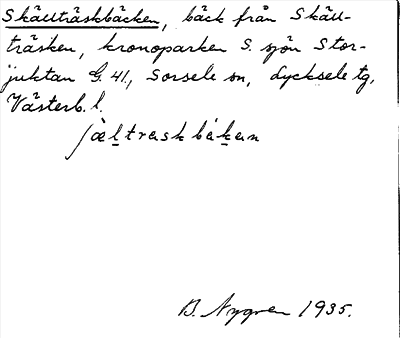 Skällträskbäcken, bäck från Skäll-
träsken, kronoparken S. sjön Stor-
juktan G. 41, Sorsele sn, Lycksele tg,
Västerb. l.
ʃæltraskbäkan
B. Nygren 1935.